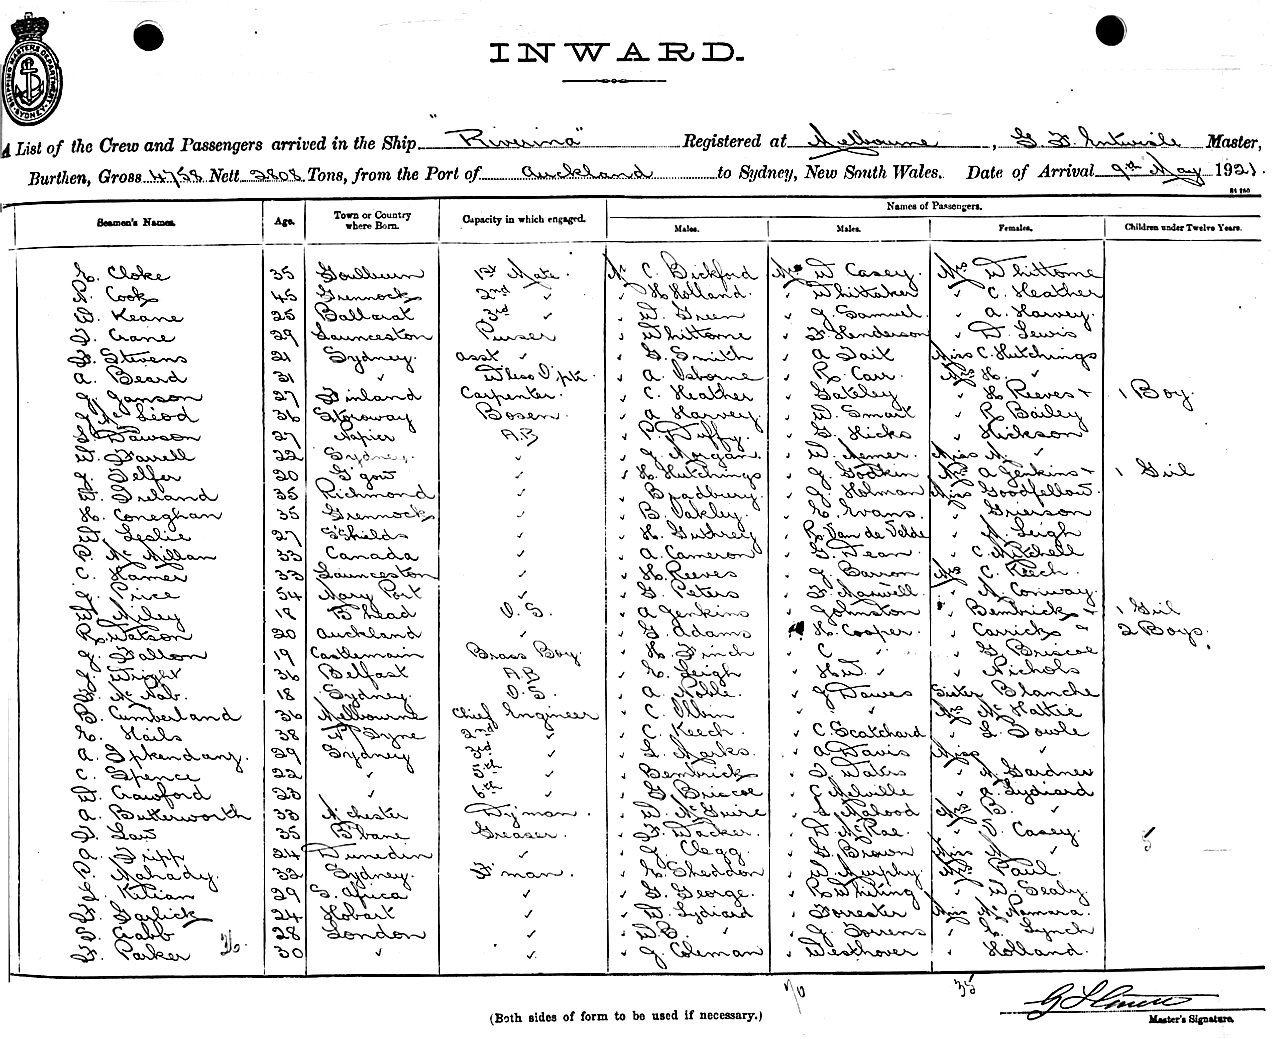 SHIPPING MASTERS DEPARTMENT SYDNEY
INWARD.
A List of the Crew and Passengers arrived in the Ship "Riverina" Registered at Melbourne, G F Entwisle Master,
Burthen, Gross 4758 Nett 2808 Tons, from the Port of Auckland to Sydney, New South Wales. Date of Arrival 9th May 1921.
Seamen's Names. Age. Town or Country where Born. Capacity in which engaged. Names of Passengers.
Males. Males. Females. Children under Twelve Years.
Cloke 35 Goulburn 1st Mate Mr C. Bickford W Casey Mrs Whittome
Cook 45 Grennock 2nd " " H Holland " Whittaker " C. Heather
W. Keane 25 Ballarat 3rd " " W. Green " J. Samuel " A. Harvey
Crane 29 Launceston Purser " Whittome " F. Henderson " D. Lewis
F. Stevens 21 Sydney Asst " " G. Smith " A Tait Miss C. Hutchings
A. Beard 31 " " A. Osborne " R. Carr " H. "
J. Janson 27 Finland Carpenter " C. Heather " Gateley " H Reeves + 1 Boy
McLiod 36 Storoway Bosen " A Harvey " W. Smart " R Bailey
Dawson 27 Napier A.B " P. Duffy " G. Hicks " Hickson
W. Farrell 22 Sydney " " J. Morgan " W. Hemer Miss N. "
J. Telfer 20 G'gow " " H. Hutchings " J. Godkin Mrs A Jenkins + 1 Girl
Ireland 35 Richmond " " Bradbury " J. Holman Miss Goodfellow
H. Coneghan 35 Grennock " " B. Oakley " Evans " Grierson
W. Leslie 27 S'Shields " " H. Guthrey " R Van de Velde " Leigh
McMillan 33 Canada " " A. Cameron " G. Dean " C. Mitchell
C. Hamer 33 Launceston " " H. Reeves " J. Barron Mrs C. Keech
J. Price 54 Mary Port " " G. Peters " F. Maxwell " Conway
W. Riley 18 B'head O.S. " A Jenkins " Johnston " Bentwick + 1 Girl
R. Watson 20 Auckland " " G. Adams " H. Cooper " Carrick + 2 Boys.
J. Fallon 19 Castlemain Brass Boy " H. Finch " C " " G. Briscoe
J. Wright 36 Belfast A.B " Leigh " H.W. " " Nichols
McNab 18 Sydney O.S. " A. Noble " J Dawes Sister Blanche
B. Cumberland 36 Melbourne Chief Engineer " C. Albin " " " Mrs McHattie
Hails 38 N. Tyne 2nd " " C. Keech " C Scatchard " Sowle
A. 29 Sydney 3rd " " Marks " A Davis Miss "
C. Spence 22 " 5th " " Bentwick " Waters " Gardner
W. Crawford 23 " 6th " " G. Briscoe " C Melville " A. Lydiard
A. Butterworth 33 M'chester D'kman " W. McGuire " Mahood Mrs B. "
Law 35 B'bane Greaser " F. Wacker " D McRae " Casey
A. Tripp 24 Dunedin " " J. Clegg " G. Brown Miss N " 5
Mahady 32 Sydney F'man " Sheddon " W. Murphy Mrs Paul
Kilian 29 S. Africa " " G. George " R Whiting " W. Sealy
F. Garlick 24 Hobart " " W. Lydiard " Forrester Miss McNamara
Crabb 28 London " " W. B. " " J. Torrens " Lynch
F. Parker 36 30 " " " J. Coleman " Westhover " Holland
70 35
(Both sides of form to be used if necessary.)
Master's Signature.